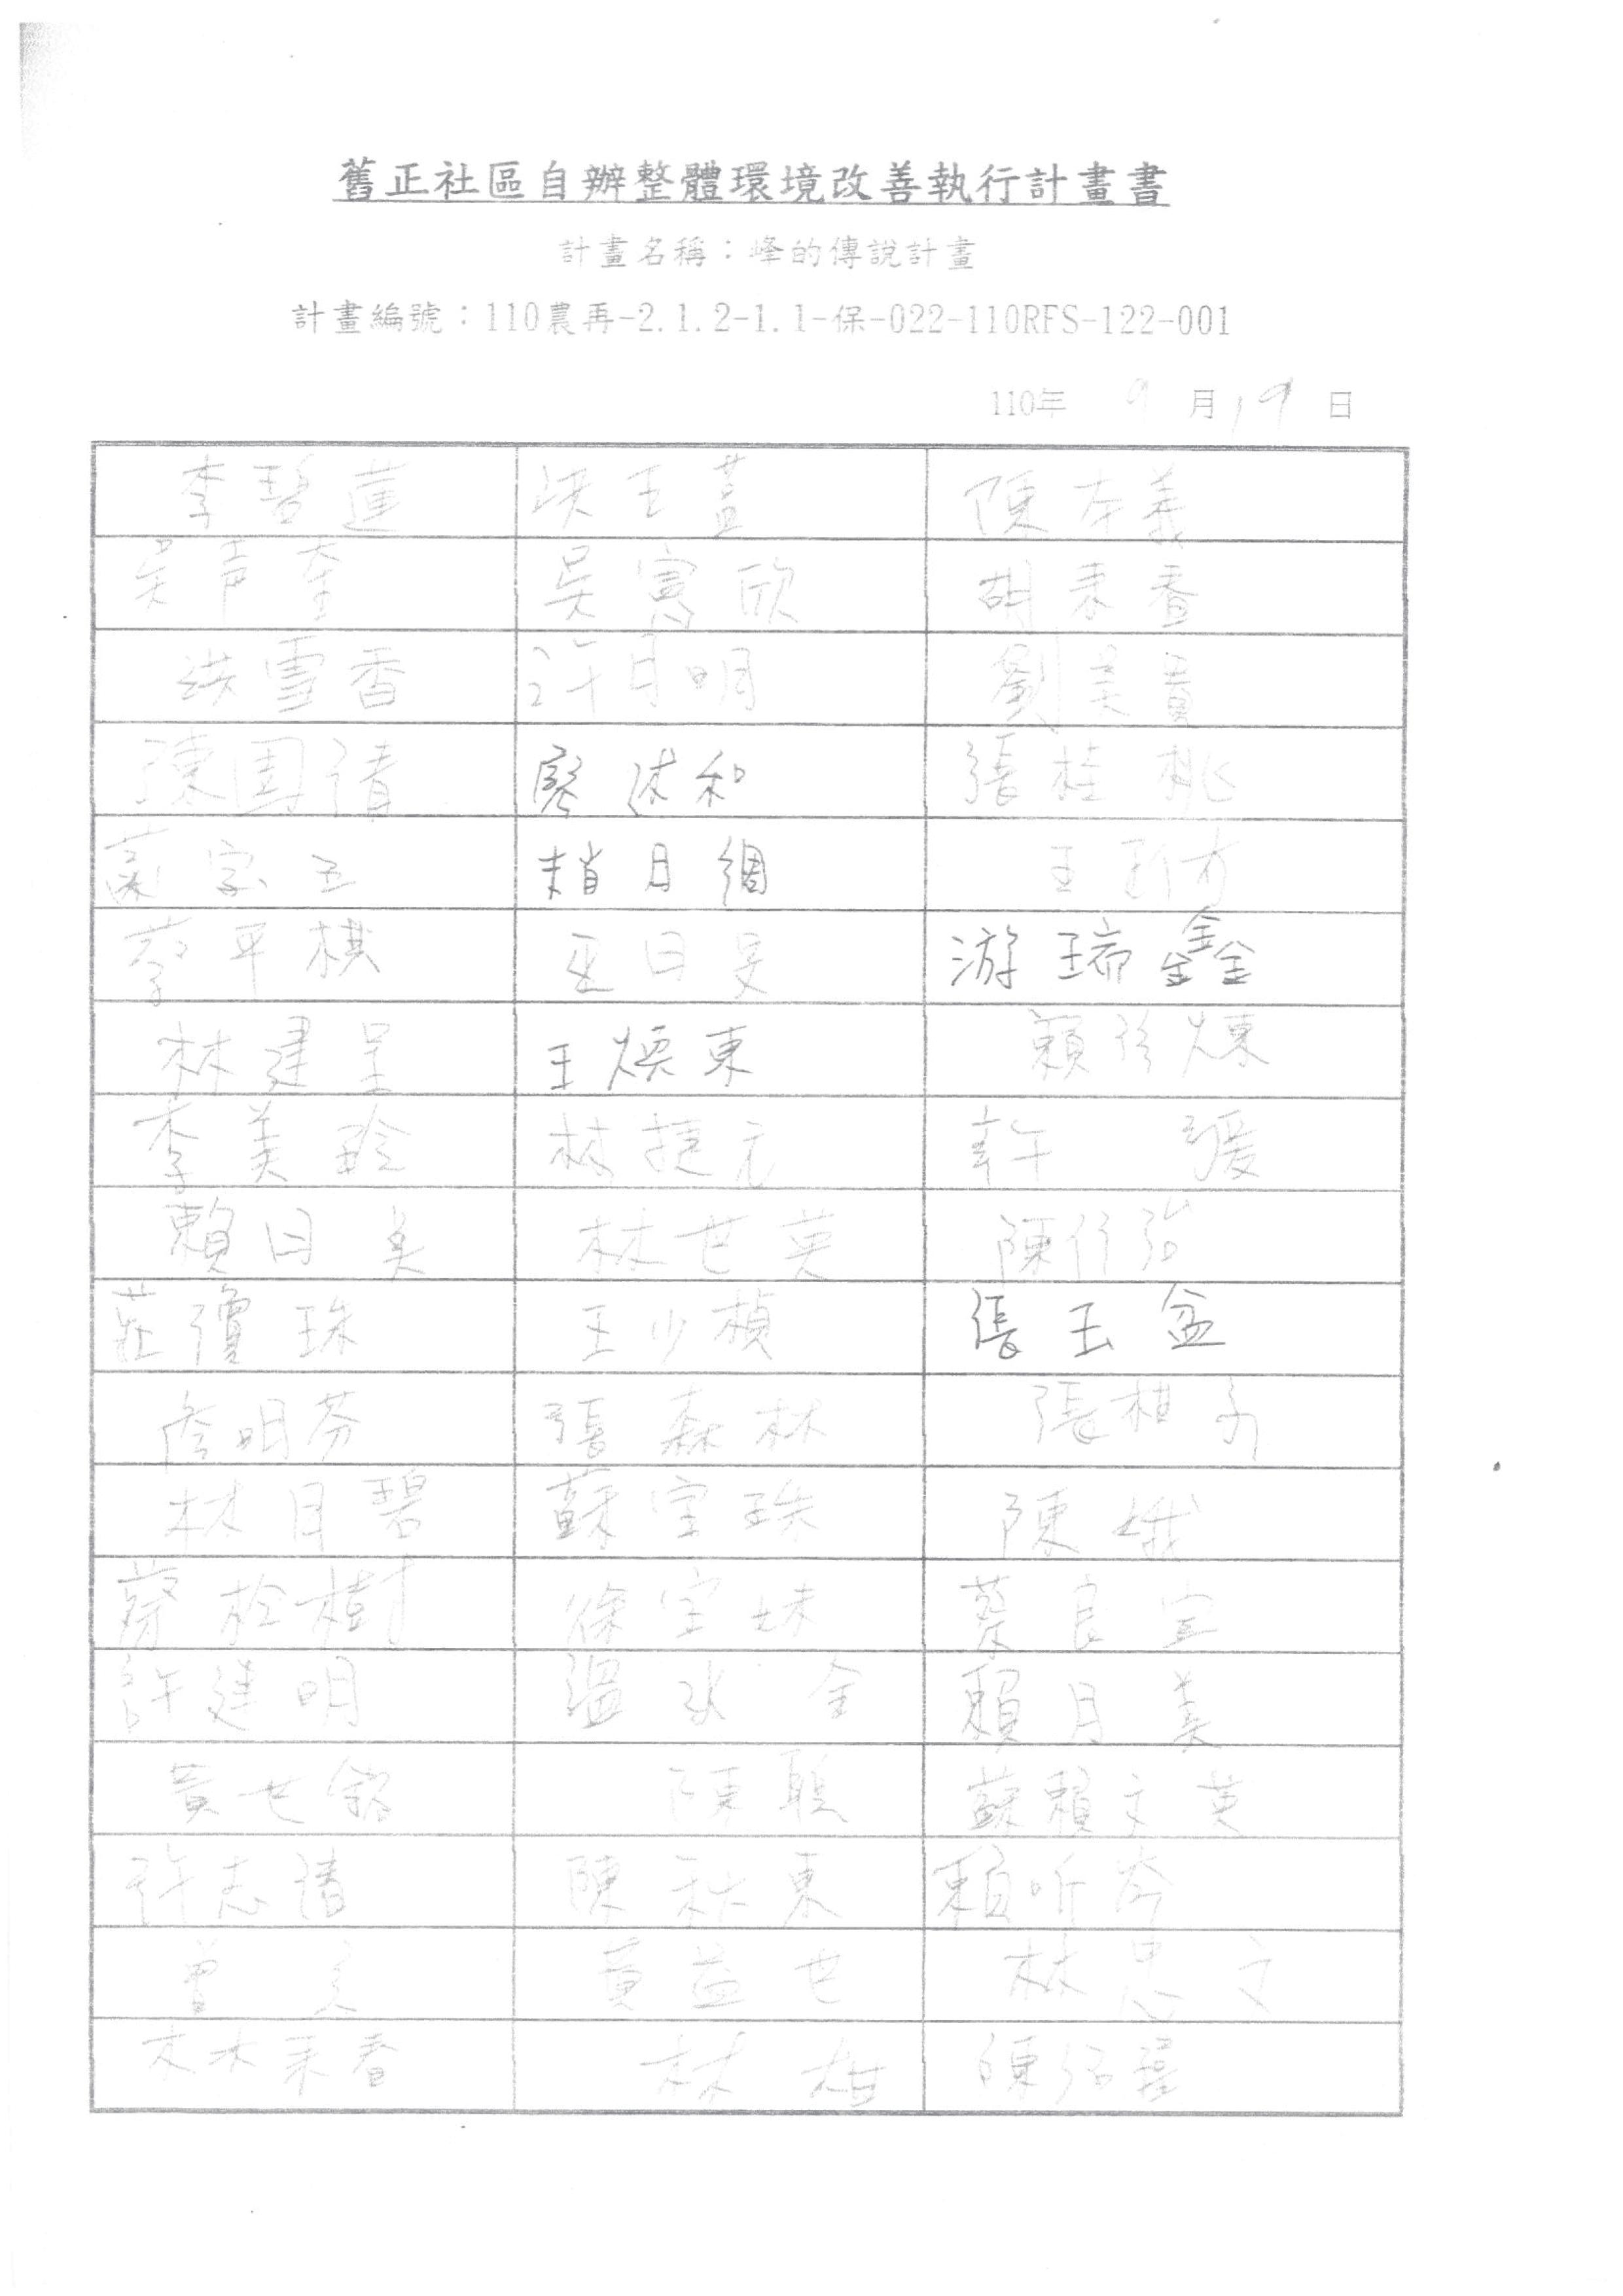 舊正社區自辦整體環境改善執行計畫書
計畫名稱：峰的傳說計畫
計畫編號：110農再-2.1.2-1.1-保-022-110RFS-122-001
110年 9 月 19 日
李碧蓮 洪玉 陳本義
吳声奎 吳 欣 胡 香
洪雪香 許月明 劉美貴
陳國清 廖 和 張桂桃
玉 趙月綢 王
蔡平棋 巫日 游瑞鑫
林建呈 王煥東 賴 煉
李美玲 林捷元 許
賴日美 林世英 陳
莊瓊珠 王少楨 張玉盆
詹明芬 張森林 張
林月碧 蘇宝珠 陳娥
蔡松樹 徐宝妹 蔡良宜
許建明 溫水金 賴月美
黃世銘 陳聰 蘇賴文英
許志清 陳秋東 賴昕岑
曾 黃益世 林 文
林 香 林梅 陳